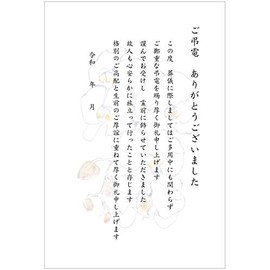 ご弔電　ありがとうございました
この度　葬儀に際しましてはご多用中にも関わらず
ご鄭重な弔電を賜り厚く御礼申し上げます
謹んでお受けし　霊前に飾らせていただきました
故人も心安らかに旅立って行ったことと存じます
格別のご高配と生前のご厚誼に重ねて厚く御礼申し上げます
令和　年　月